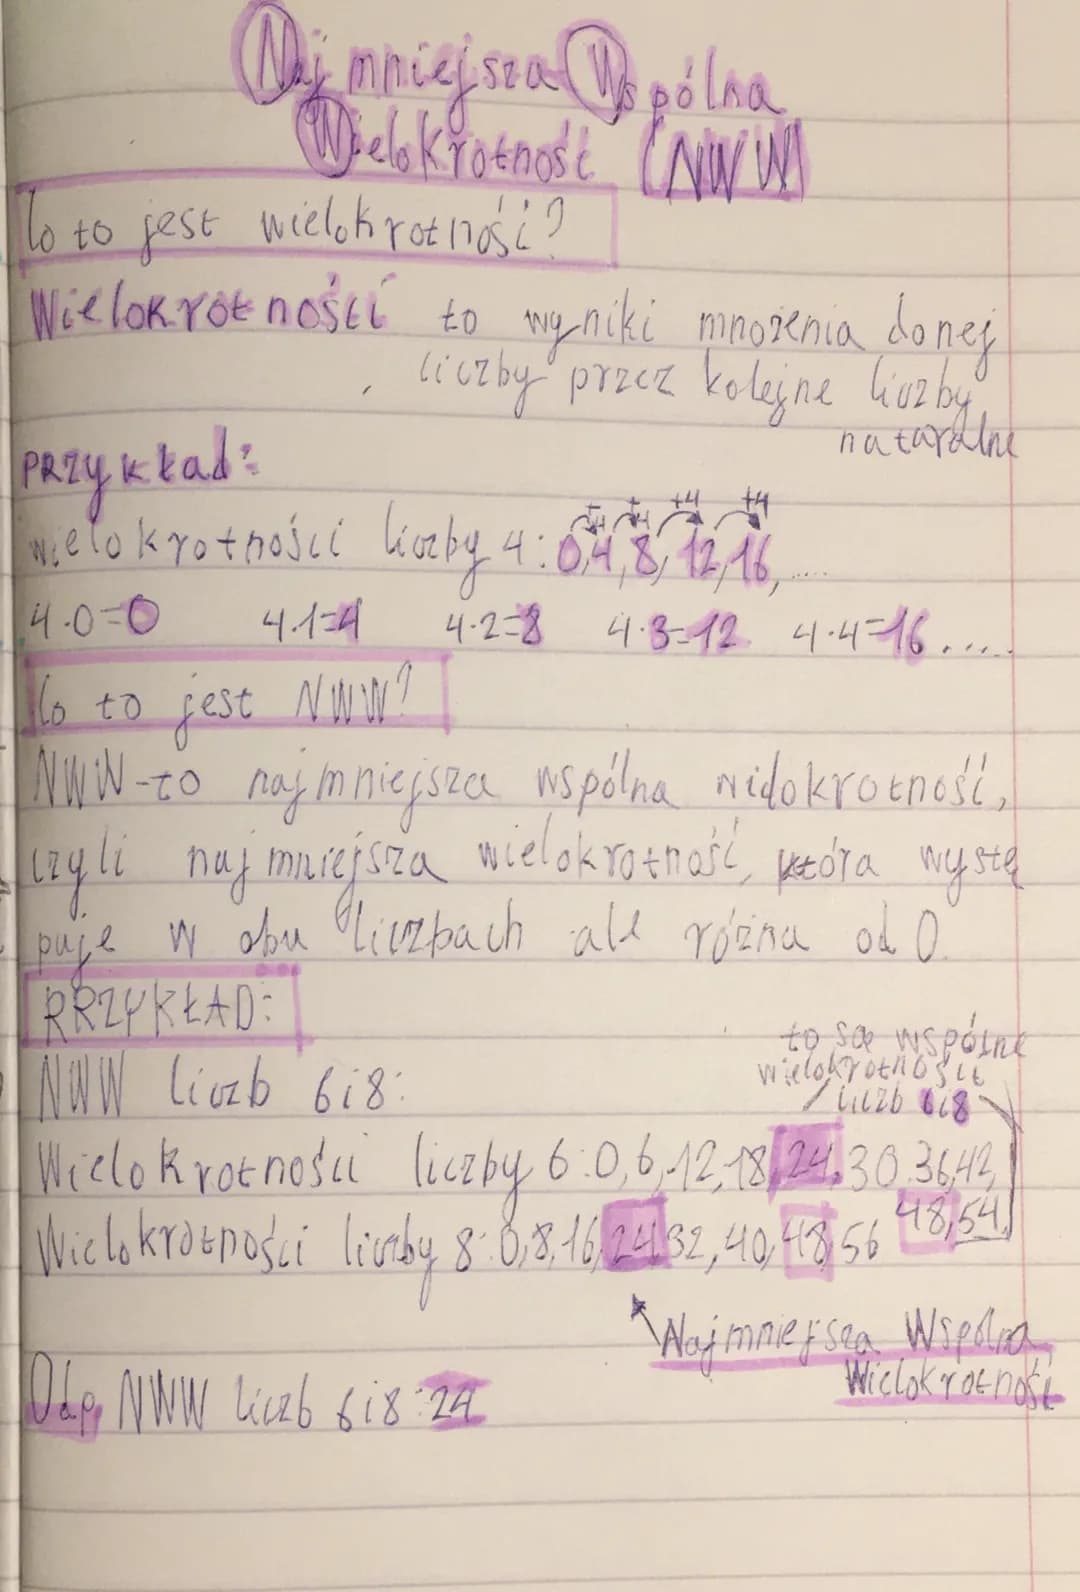 Najmniejsza Wspólna
Wielokrotność (NWW)
Co to jest wielokrotność?
Wielokrotności to wyniki mnożenia danej
liczby przez kolejne liczby
naturalne
PRZykład:
+4 +4 +4 +4
wielokrotności liczby 4: 0,4,8,12,16,....
4·0=0 4·1=4 4·2=8 4·3=12 4·4=16.....
Co to jest NWW?
NWW-to najmniejsza wspólna wielokrotność,
czyli najmniejsza wielokrotność, która wystę
puje w obu liczbach ale różna od 0.
PRZYKŁAD:
to są wspólne
wielokrotności
liczb 6i8
NWW liczb 6i8:
Wielokrotności liczby 6:0,6,12,18,24,30.36,42,
48,54.
Wielokrotności liczby 8:0,8,16,24,32,40,48,56
Najmniejsza Wspólna
Wielokrotność
Odp. NWW liczb 6i8:24